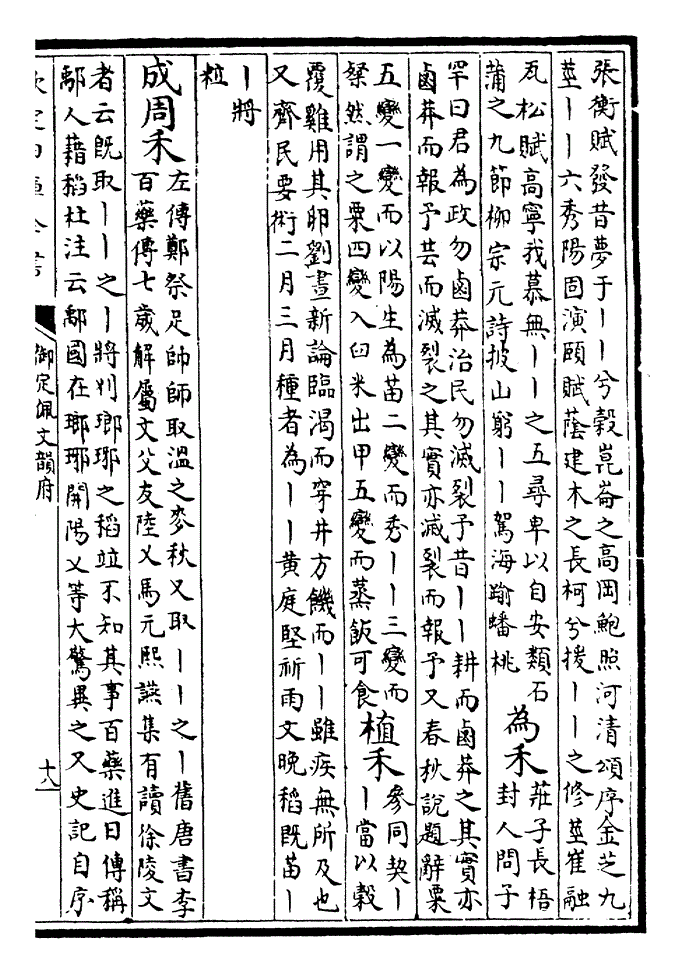 張衡賦發昔夢于丨丨兮穀崑崙之高岡鮑照河清頌序金芝九
莖丨丨六秀陽固演頤賦蔭建木之長柯兮援丨丨之修莖崔融
瓦松賦高寧我慕無丨丨之五尋卑以自安類石
蒲之九節柳宗元詩披山窮丨丨駕海踰蟠桃
為禾
莊子長梧
封人問子
牢曰君為政勿鹵莽治民勿滅裂予昔丨丨耕而鹵莽之其實亦
鹵莽而報予芸而滅裂之其實亦滅裂而報予又春秋說題辭粟
五變一變而以陽生為苗二變而秀丨丨三變而
粲然謂之粟四變入臼米出甲五變而蒸飯可食
植禾
參同契丨
丨當以穀
覆雞用其卵劉晝新論臨渴而穿井方饑而丨丨雖疾無所及也
又齊民要術二月三月種者為丨丨黄庭堅祈雨文晚稻既苗丨
丨將
粒
成周禾
左傳鄭祭足帥師取溫之麥秋又取丨丨之丨舊唐書李
百藥傳七歲解屬文父友陸乂馬元熙讌集有讀徐陵文
者云旣取丨丨之丨將刈瑯琊之稻竝不知其事百藥進曰傳稱
鄅人藉稻杜注云鄅國在瑯琊開陽乂等大驚異之又史記自序
御定佩文韻府
十八